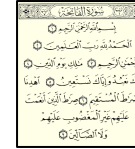 سورة الفاتحة
بسم الله الرحمن الرحيم ١
الحمد لله رب العلمين ٢
الرحمن الرحيم ٣ ملك يوم الدين ٤
نعبد وإياك نستعين ٥ اهدنا
الصرط المستقيم ٦ صرط الذين أنعمت
عليهم غير المغضوب عليهم
ولا الضالين ٧